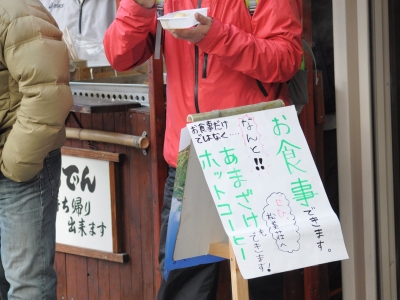 お食事できます。
なんと!!
お食事だけ
ではなく…
あまざけ
ホットコーヒー
もできます!
でん
持ち帰り
出来ます